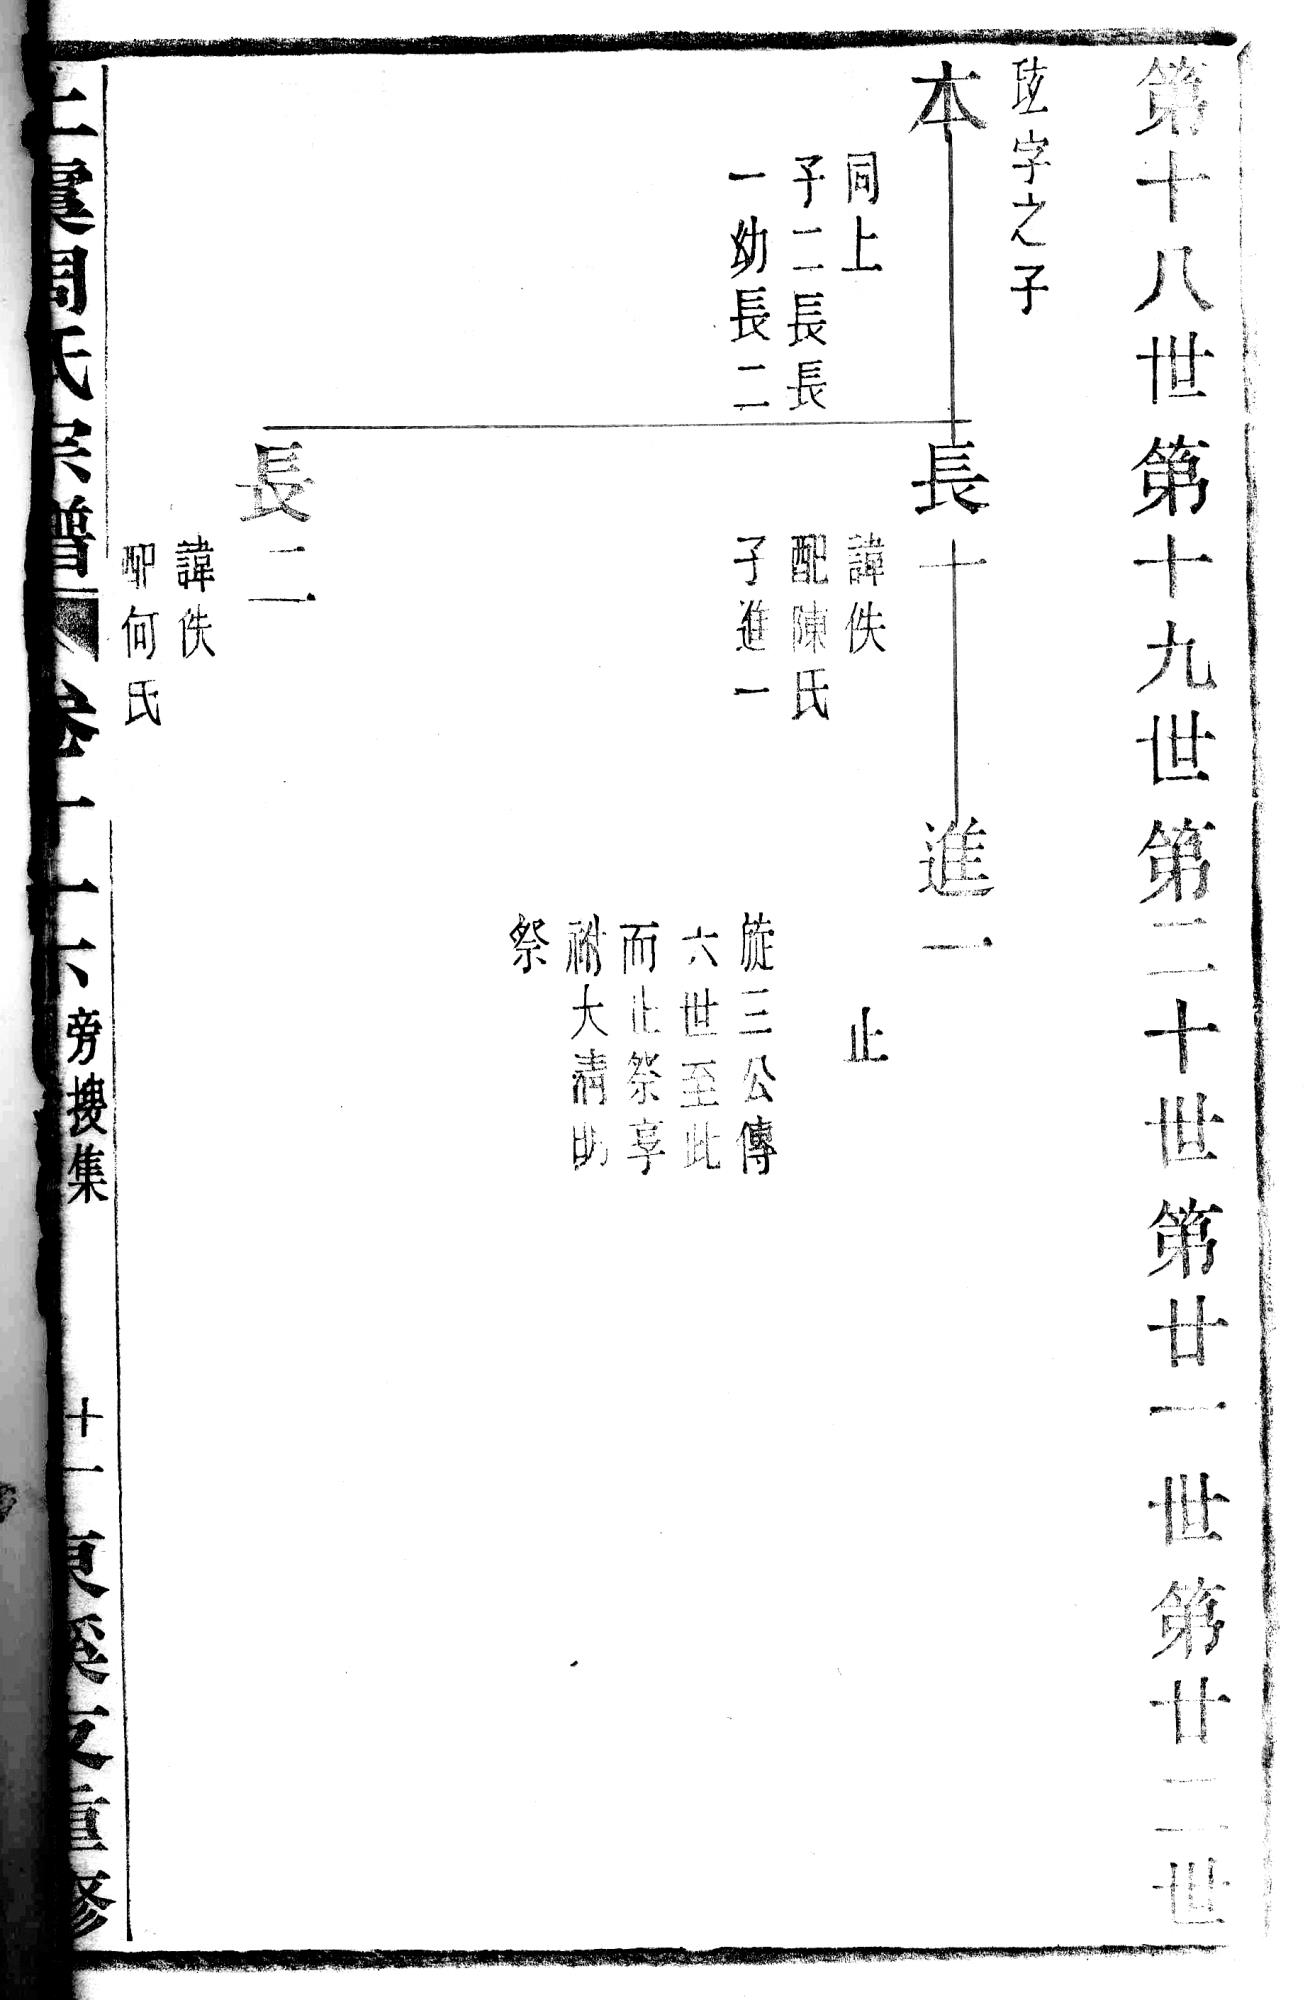 第十八世第十九世第二十世第廿一世第廿二世
字之子
本
同上
子二長長
一幼長二
長一
諱佚
配陳氏
子進一
進一
止
旋三公傳
六世至此
而止祭享
祔大清明
祭
長二
諱佚
配何氏
上虞周氏宗譜 卷十六 旁搜集 十一 重修